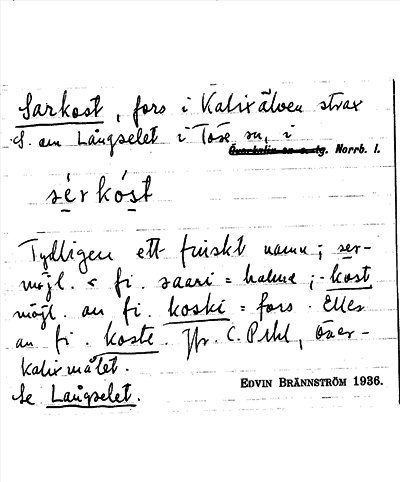 Sarkost, fors i Kalixälven strax
S. om Långselet i Töre sn, i
Norrb. l.
sérkóst
Tydligen ett finskt namn; ser-
möjl. < fi. saari = holme; -kost
möjl. av fi. koski = fors. Eller
av fi. koste. Jfr. C. Pihl, Över-
kalixmålet.
Se Långselet.
EDVIN BRÄNNSTRÖM 1936.